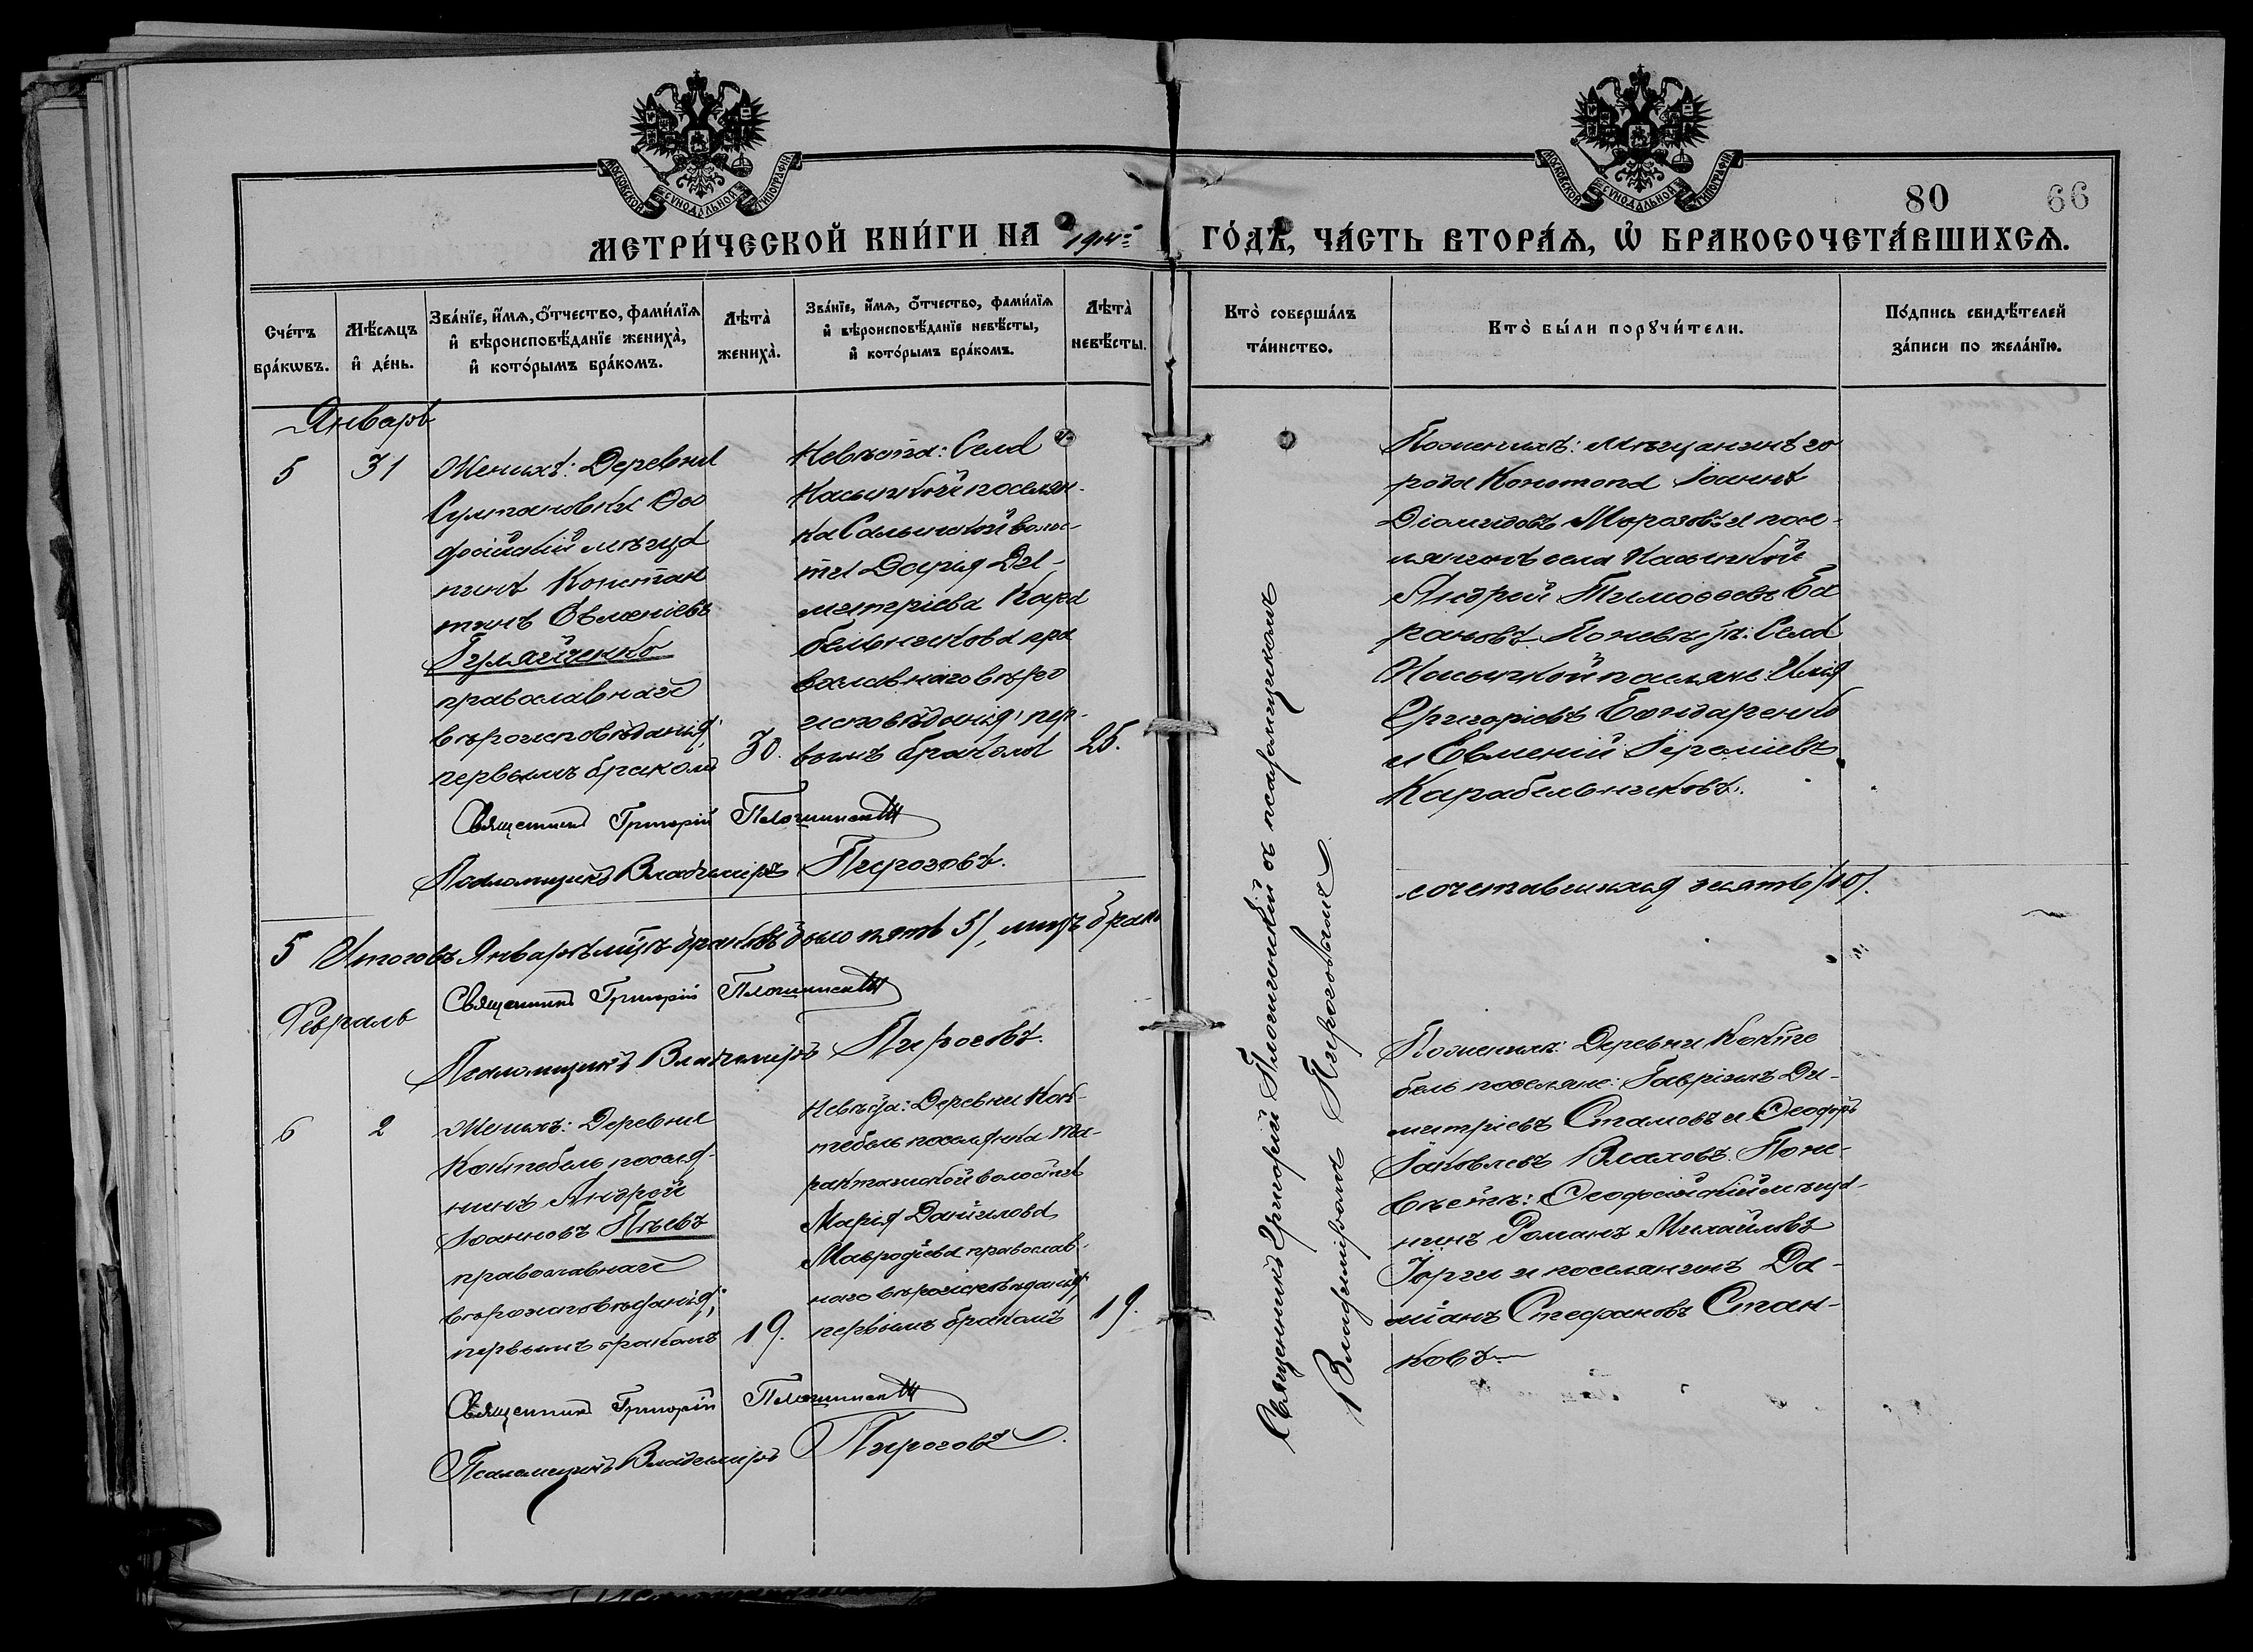 МОСКОВСКОЙ СУНОДАЛЬНОЙ ТИПОГРАФІИ
МОСКОВСКОЙ СУНОДАЛЬНОЙ ТИПОГРАФІИ
80 66
МЕТРИ́ЧЕСКОЙ КНИ́ГИ НА 1914 г ГО́ДЪ, ЧА́СТЬ ВТОРА́Ѧ, Ѡ҆ БРАКОСОЧЕТА́ВШИХСѦ.
Сче́тъ
бра́кѡвъ.
Мѣ́сѧцъ
и҆ де́нь.
Зва́нїе, и҆́мѧ, ѻ҆́тчество, фами́лїѧ
и҆ вѣроисповѣ́данїе жениха̀,
и҆ кото́рымъ бра́комъ.
Лѣта̀
жениха̀.
Зва́нїе, и҆́мѧ, ѻ҆́тчество, фами́лїѧ
и҆ вѣроисповѣ́данїе невѣ́сты,
и҆ кото́рымъ бра́комъ.
Лѣта̀
невѣ́сты.
Кто̀ соверша́лъ
та́инство.
Кто̀ бы́ли порꙋчи́тели.
По́дпись свидѣ́телей
за́писи по жела́нїю.
Январь
5
31
Женихъ: Деревни
Султановки Ѳео
досійскій мѣща
нинъ Констан
тинъ Евменіевъ
Гуляйченко
православнаго
вѣроисповѣданія;
первымъ бракомъ
30.
Невѣста: Села
посѣлян-
ка Салынской волос-
ти Дарія Ди-
митріева Кара
бельникова пра
вославнаго вѣро
исповѣданія; пер-
вымъ бракомъ
25.
Священникъ Григорій Плогинскій съ псаломщикомъ
Владиміромъ Пироговымъ
По женихѣ: мѣщанинъ го
рода Конотопа Іоаннъ
Діомидовъ Морозовъ и посе-
лянинъ села
Андрей Тимоѳеевъ Ба
рановъ. По невѣстѣ: Села
поселяне: Илія
Григорьевъ Бондаренко
и Евменій
Карабельниковъ.
Священникъ Григорій Плогинскій
Псаломщикъ Владиміръ Пироговъ.
5 Итого въ Январѣ м-цѣ браковъ было пять 5/, лицъ брако
сочетавшихся десять /10/.
Священникъ Григорій Плогинскій
Псаломщикъ Владиміръ Пироговъ.
Февраль
6
2
Женихъ: Деревни
Коктебель поселя-
нинъ Андрей
Іоанновъ Пѣевъ
православнаго
вѣроисповѣданія;
первымъ бракомъ
19.
Невѣста: Деревни Кок-
тебель поселянка Та-
ракташской волости
Марія Даніилова
Мавродіева православ-
наго вѣроисповѣданія;
первымъ бракомъ
19.
По женихѣ: Деревни Кокте
бель поселяне: Гавріилъ Ди-
митріевъ Стамовъ и Ѳеодоръ
Іаковлевъ Влаховъ. По не-
вѣстѣ: Ѳеодосійскій мѣща-
нинъ Романъ Михайловъ
Іорги и поселянинъ Да-
міанъ Стефановъ Стан-
ковъ.
Священникъ Григорій Плогинскій
Псаломщикъ Владиміръ Пироговъ.